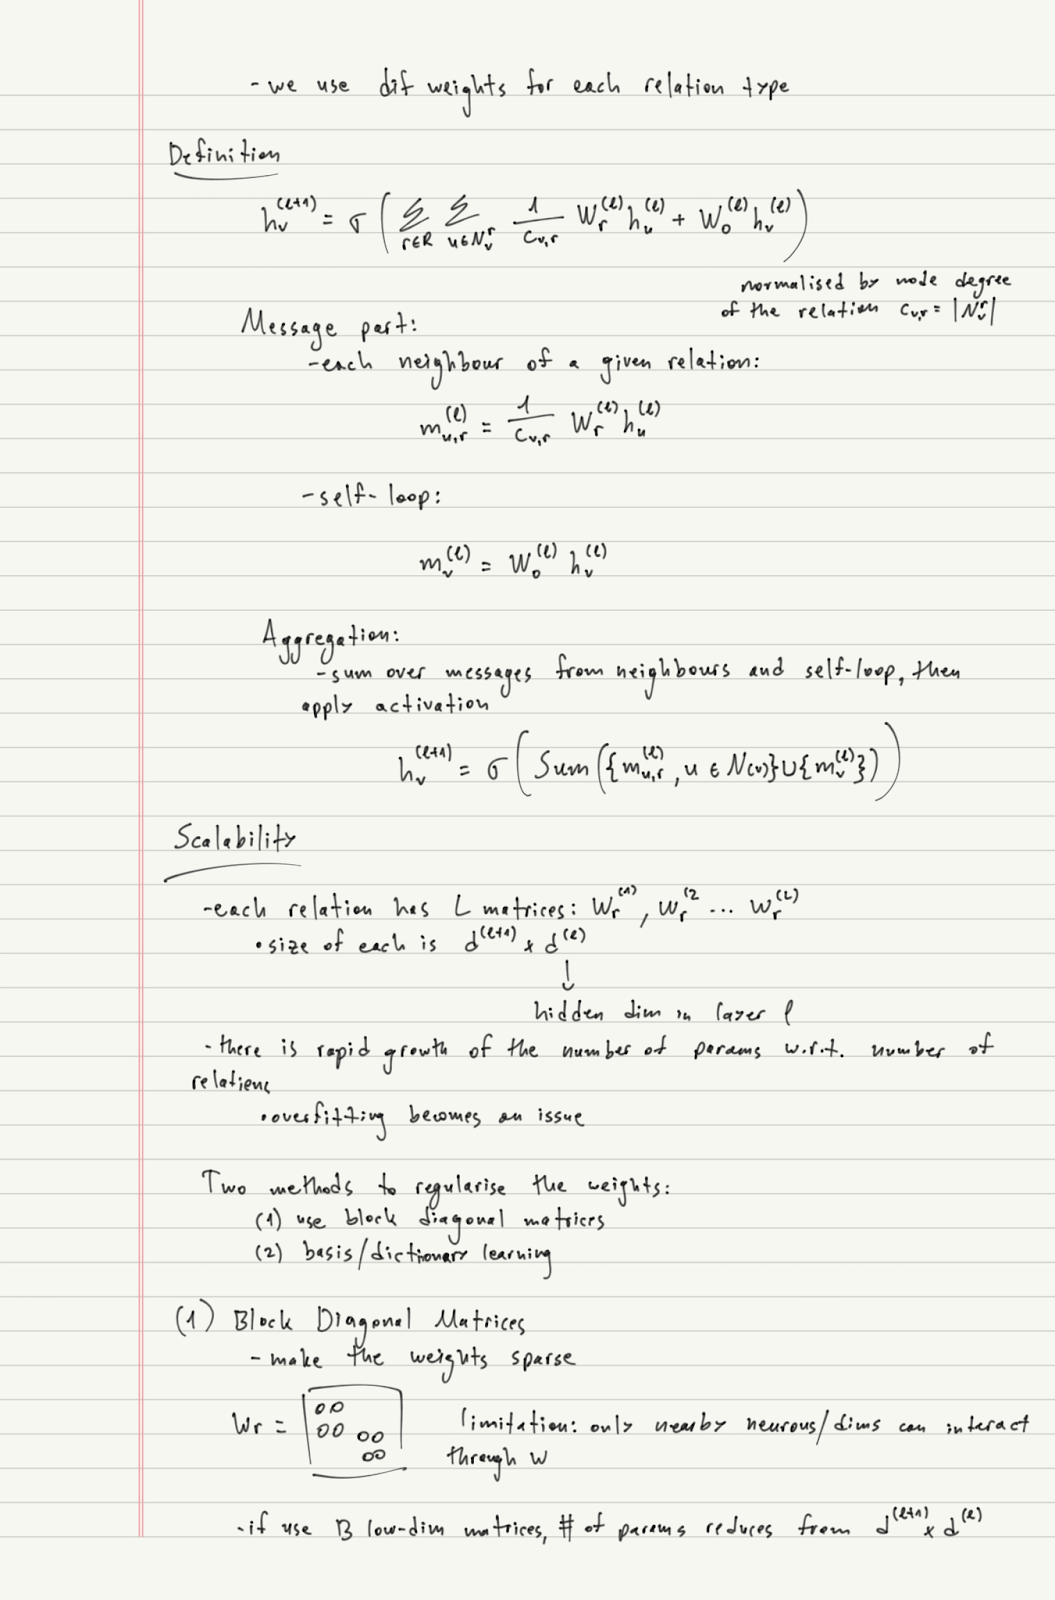 - we use dif weights for each relation type
Definition
h_v^(l+1) = σ ( Σ_{r∈R} Σ_{u∈N_v^r} 1/c_{v,r} W_r^(l) h_u^(l) + W_0^(l) h_v^(l) )
normalised by node degree
of the relation c_{v,r} = |N_v^r|
Message part:
- each neighbour of a given relation:
m_{u,r}^(l) = 1/c_{v,r} W_r^(l) h_u^(l)
- self-loop:
m_v^(l) = W_0^(l) h_v^(l)
Aggregation:
- sum over messages from neighbours and self-loop, then
apply activation
h_v^(l+1) = σ ( Sum ({m_{u,r}^(l), u ∈ N(v)} ∪ {m_v^(l)}) )
Scalability
- each relation has L matrices: W_r^(1), W_r^(2 ... W_r^(L)
• size of each is d^(l+1) x d^(l)
↓
hidden dim in layer l
- there is rapid growth of the number of params w.r.t. number of
relations
• overfitting becomes an issue
Two methods to regularise the weights:
(1) use block diagonal matrices
(2) basis/dictionary learning
(1) Block Diagonal Matrices
- make the weights sparse
Wr = [
00
00 00
00
]
limitation: only nearby neurons/dims can interact
through W
- if use B low-dim matrices, # of params reduces from d^(l+1) x d^(l)